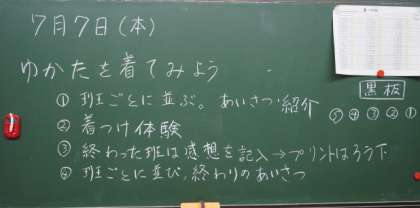 7月7日(木)
ゆかたを着てみよう
① 班ごとに並ぶ。あいさつ・紹介
② 着つけ体験
③ 終わった班は感想を記入→プリントはろう下
④ 班ごとに並び、終わりのあいさつ
黒板
⑤ ④ ③ ② ①